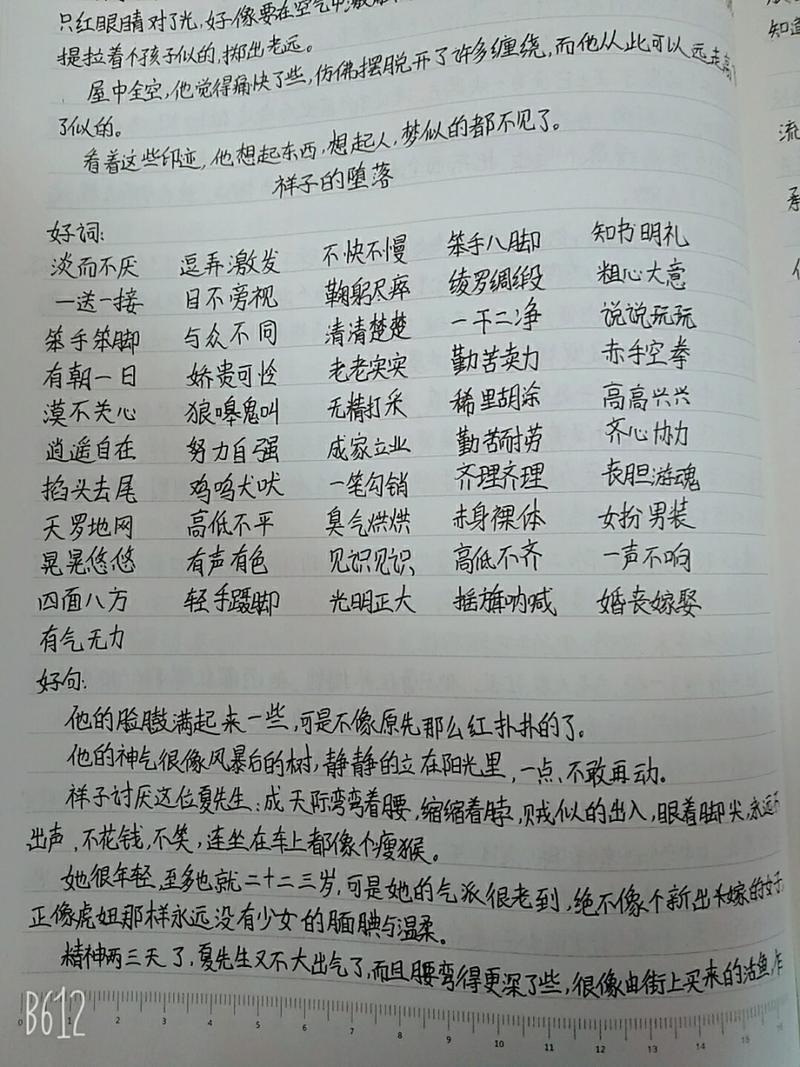 只红眼睛对了光,好像要在空气中激
提拉着个孩子似的,掷出老远。
屋中全空,他觉得痛快了些,仿佛摆脱开了许多缠绕,而他从此可以远走高
了似的。
看着这些印迹,他想起东西,想起人,梦似的都不见了。
祥子的堕落
好词:
淡而不厌 逗弄激发 不快不慢 笨手八脚 知书明礼
一送一接 目不旁视 鞠躬尺瘁 绫罗绸缎 粗心大意
笨手笨脚 与众不同 清清楚楚 一干二净 说说玩玩
有朝一日 娇贵可怜 老老实实 勤苦卖力 赤手空拳
漠不关心 狼嗥鬼叫 无精打采 稀里胡涂 高高兴兴
逍遥自在 努力自强 成家立业 勤苦耐劳 齐心协力
掐头去尾 鸡鸣犬吠 一笔勾销 齐理齐理 丧胆游魂
天罗地网 高低不平 臭气烘烘 赤身裸体 女扮男装
晃晃悠悠 有声有色 见识见识 高低不齐 一声不响
四面八方 轻手蹑脚 光明正大 摇旗呐喊 婚丧嫁娶
有气无力
好句:
他的脸臌满起来一些,可是不像原先那么红扑扑的了。
他的神气很像风暴后的树,静静的立在阳光里,一点不敢再动。
祥子讨厌这位夏先生:成天际弯弯着腰,缩缩着脖,贼似的出入,眼着脚尖,永远不
出声,不花钱,不笑,连坐在车上都像个瘦猴。
她很年轻,至多也就二十二三岁,可是她的气派很老到,绝不像个新出嫁的女子
正像虎妞那样永远没有少女的腼腆与温柔。
精神两三天了,夏先生又不大出气了,而且腰弯得更深了些,很像由街上买来的活鱼,乍
B612
0 1 2 3 4 5 6 7 8 9 10 11 12 13 14 15
知道
流